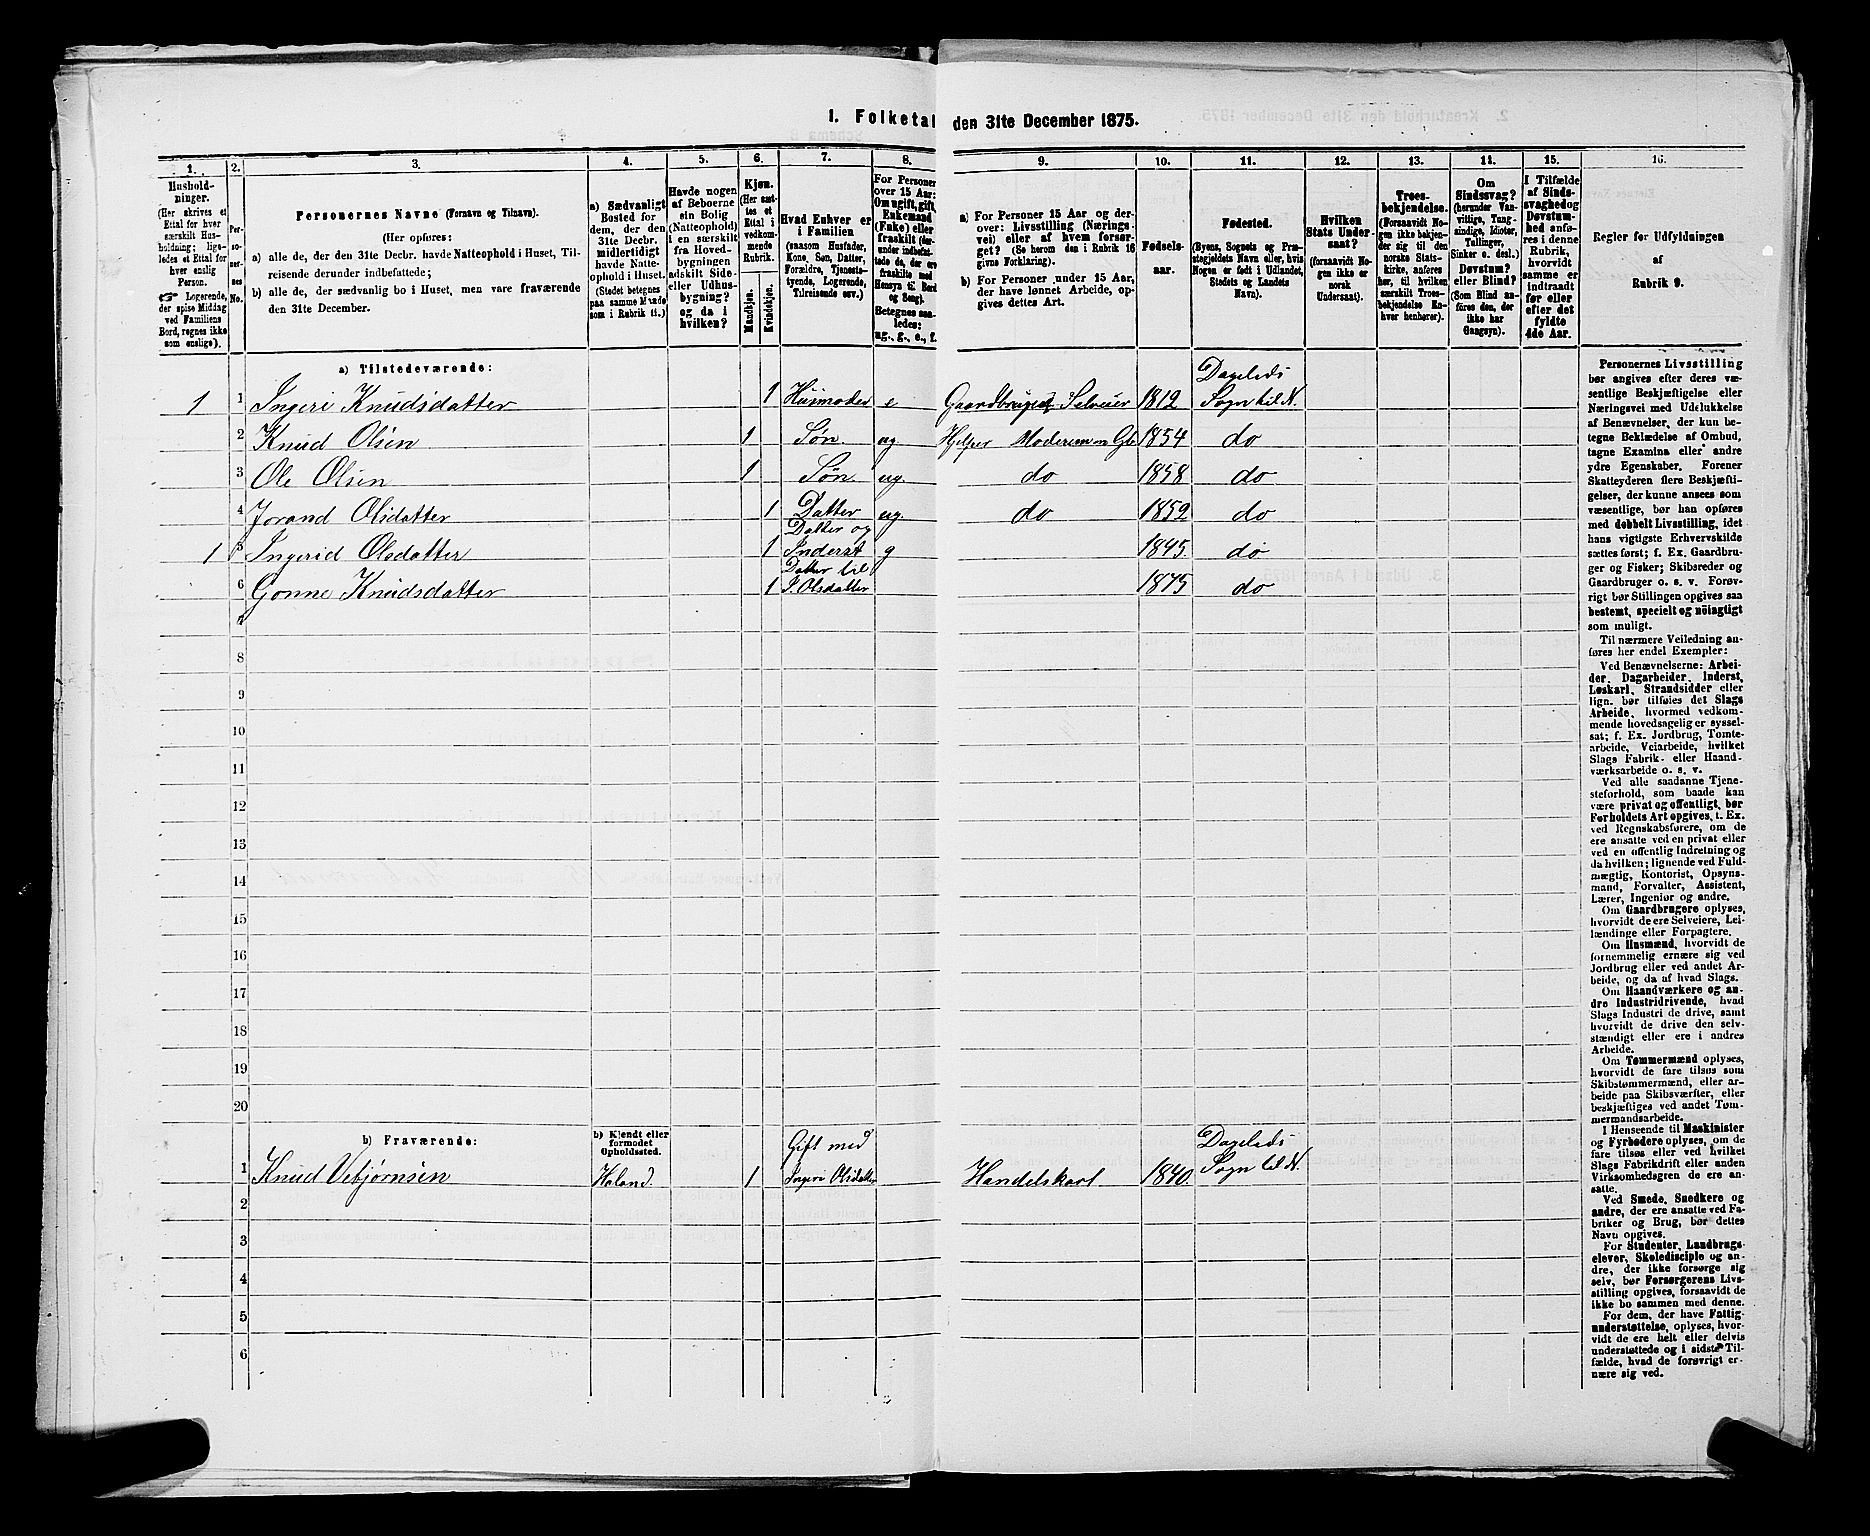 1. Folketal den 31te December 1875.
1. 2. 3. 4. 5. 6. 7. 8. 9. 10. 11. 12. 13. 14. 15. 16.
Hushold-
ninger.
(Her skrives et
Ettal for hver
særskilt Hus-
holdning; lige-
ledes et Ettal for
hver enslig
Person.
☞ Logerende,
der spise Middag
ved Familiens
Bord, regnes ikke
som enslige).
Per-
so-
ner-
nes
No.
Personernes Navne (Fornavn og Tilnavn).
(Her opføres:
a) alle de, der den 31te Decbr. havde Natteophold i Huset, Til-
reisende derunder indbefattede;
b) alle de, der sædvanlig bo i Huset, men vare fraværende
den 31te December.
a) Sædvanligt
Bosted for
dem, der den
31te Decbr.
midlertidigt
havde Natte-
ophold i Huset.
(Stedet betegnes
paa samme Maade
som i Rubrik 11.)
Havde nogen
af Beboerne
sin Bolig
(Natteophold)
i en særskilt
fra Hoved-
bygningen
adskilt Side-
eller Udhus-
bygning?
og da i
hvilken?
Kjøn.
(Her sæt-
tes et
Ettal i
vedkom-
mende
Rubrik.
Mandkjøn.
Kvindekjøn.
Hvad Enhver er
i Familien
(saasom Husfader,
Kone, Søn, Datter,
Forældre, Tjeneste-
tyende, Logerende,
Tilreisende osv.)
For Personer
over 15 Aar:
Om ugift, gift,
Enkemand
(Enke) eller
fraskilt (der-
under indbefat-
tede de, der ere
fraskilte med
Hensyn til Bord
og Seng).
Betegnes saa-
ledes:
ug., g., e., f.
a) For Personer 15 Aar og der-
over: Livsstilling (Nærings-
vei) eller af hvem forsør-
get? (Se herom den i Rubrik 16
givne Forklaring).
b) For Personer under 15 Aar,
der have lønnet Arbeide, op-
gives dettes Art.
Fødsels-
aar.
Fødested.
(Byens, Sognets og Præ-
stegjeldets Navn eller, hvis
Nogen er født i Udlandet,
Stedets og Landets
Navn).
Hvilken
Stats Under-
saat?
(forsaavidt No-
gen ikke er
norsk
Undersaat).
Troes-
bekjendelse.
(Forsaavidt No-
gen ikke bekjen-
der sig til den
norske Stats-
kirke, anføres
her, til hvilken
særskilt Troes-
bekjendelse En-
hver henhører).
Om
Sindssvag?
(herunder Van-
vittige, Tung-
sindige, Idioter,
Tullinger,
Sinker o. desl.)
Døvstum?
eller Blind?
(Som Blind an-
føres den, der
ikke har
Gangsyn).
I Tilfælde
af Sinds-
svaghed og
Døvstum-
hed anfø-
res i denne
Rubrik,
hvorvidt
samme er
indtraadt
før eller
efter det
fyldte
4de Aar.
Regler for Udfyldningen
af
Rubrik 9.
a) Tilstedeværende:
1 1 Ingeri Knudsdatter 1 Husmoder e Gaardbruger Selveier 1812 Dagalids Sogn til N.
2 Knud Olsen 1 Søn ug Hjelper Moderen m Gb 1854 do
3 Ole Olsen 1 Søn ug. do 1858 do
4 Jorand Olsdatter 1 Datter ug do 1852 do
1 5 Ingerid Olsdatter 1 Datter og Inderst g 1845 do
6 Gonne Knudsdatter 1 Datter til I. Olsdatter 1875 do
7
8
9
10
11
12
13
14
15
16
17
18
19
20
b) Fraværende:
b) Kjendt eller
formodet
Opholdssted.
1 Knud Vebjørnsen Holand. 1 Gift med Ingeri Olsdatter Handelskarl 1840. Dagalids Sogn til N.
2
3
4
5
6
Personernes Livsstilling
bør angives efter deres væ-
sentlige Beskjæftigelse eller
Næringsvei med Udelukkelse
af Benævnelser, der kun be-
tegne Beklædelse af Ombud,
tagne Examina eller andre
ydre Egenskaber. Forener
Skatteyderen flere Beskjæfti-
gelser, der kunne ansees som
væsentlige, bør han opføres
med dobbelt Livsstilling, idet
hans vigtigste Erhvervskilde
sættes først; f. Ex. Gaardbru-
ger og Fisker; Skibsreder og
Gaardbruger o. s. v. Forøv-
rigt bør Stillingen opgives saa
bestemt, specielt og nöiagtigt
som muligt.
Til nærmere Veiledning an-
føres her endel Exempler:
Ved Benævnelserne: Arbei-
der, Dagarbeider, Inderst,
Løskarl, Strandsidder eller
lign. bør tilføies det Slags
Arbeide, hvormed vedkom-
mende hovedsagelig er syssel-
sat; f. Ex. Jordbrug, Tomte-
arbeide, Veiarbeide, hvilket
Slags Fabrik- eller Haand-
værksarbeide o. s. v.
Ved alle saadanne Tjene-
steforhold, som baade kan
være privat og offentligt, bør
Forholdets Art opgives, t. Ex.
ved Regnskabsførere, om de
ere ansatte ved en privat eller
ved en offentlig Indretning og
da hvilken; lignende ved Fuld-
mægtig, Kontorist, Opsyns-
mand, Forvalter, Assistent,
Lærer, Ingeniør og andre.
Om Gaardbrugere oplyses,
hvorvidt de ere Selveiere, Lei-
lændinge eller Forpagtere.
Om Husmænd, hvorvidt de
fornemmelig ernære sig ved
Jordbrug eller ved andet Ar-
beide, og da af hvad Slags.
Om Haandværkere og an-
dre Industridrivende, hvad
Slags Industri de drive, samt
hvorvidt de drive den selv-
stændigt eller ere i andres
Arbeide.
Om Tømmermænd oplyses,
hvorvidt de fare tilsøs som
Skibstømmermænd, eller ar-
beide paa Skibsværfter, eller
beskjæftiges ved andet Tøm-
mermandsarbeide.
I Henseende til Maskinister
og Fyrbødere oplyses, om de
fare tilsøs eller ved hvilket
Slags Fabrikdrift eller anden
Virksomhedsgren de ere an-
satte.
Ved Smede, Snedkere og
andre, der ere ansatte ved Fa-
briker og Brug, bør dettes
Navn opgives.
For Studenter, Landbrugs-
elever, Skoledisciple og an-
dre, der ikke forsørge sig
selv, bør Forsørgerens Livs-
stilling opgives, forsaavidt de
ikke bo sammen med denne.
For dem, der have Fattig-
understøttelse, oplyses, hvor-
vidt de ere helt eller delvis
understøttede og i sidste Til-
fælde, hvad de forøvrigt er-
nære sig ved.